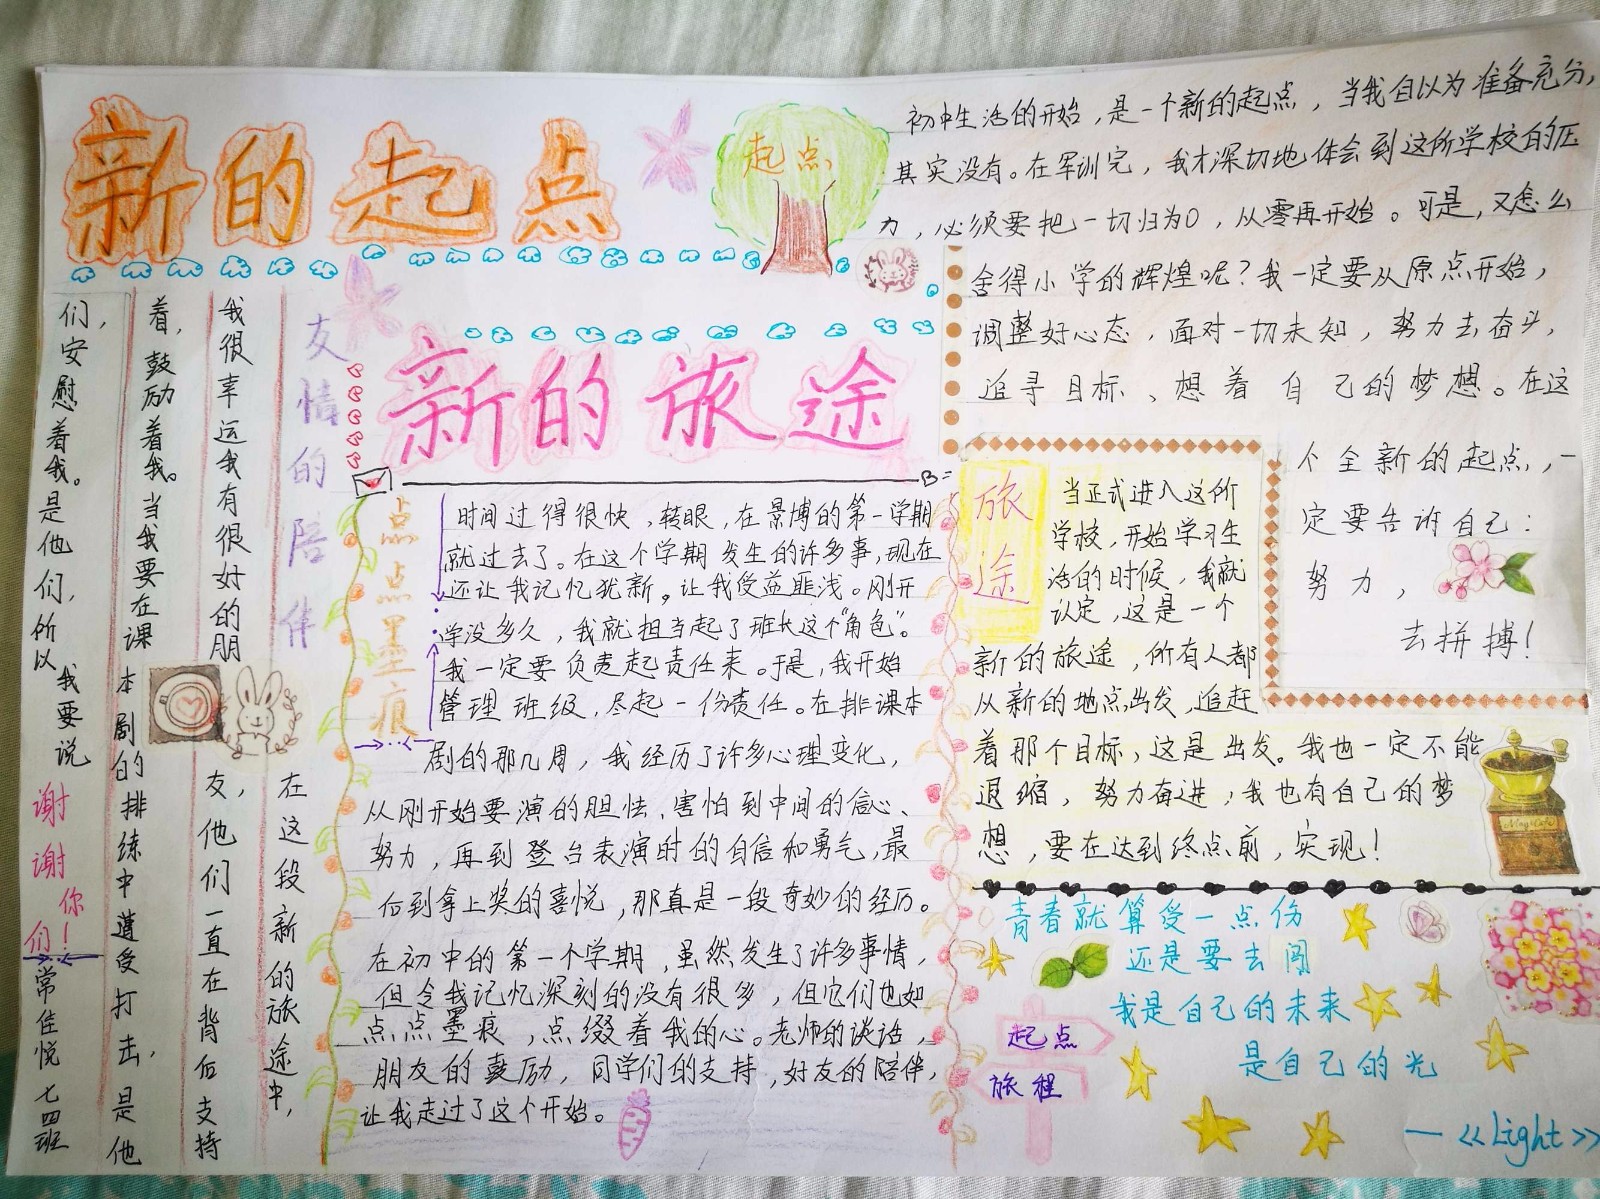 新的起点
起点
初中生活的开始，是一个新的起点，当我自以为准备充分，
其实没有。在军训完，我才深切地体会到这所学校的压
力，必须要把一切归为0，从零再开始。可是，又怎么
舍得小学的辉煌呢？我一定要从原点开始，
调整好心态，面对一切未知，努力去奋斗，
追寻目标、想着自己的梦想。在这
个全新的起点，一
定要告诉自己：
努力，
去拼搏！
新的旅途
点点墨痕
时间过得很快，转眼，在景博的第一学期
就过去了。在这个学期发生的许多事，现在
还让我记忆犹新。让我受益匪浅。刚开
学没多久，我就担当起了班长这个“角色”。
我一定要负责起责任来。于是，我开始
管理班级，尽起一份责任。在排课本
剧的那几周，我经历了许多心理变化，
从刚开始要演的胆怯、害怕到中间的信心、
努力，再到登台表演时的自信和勇气，最
后到拿上奖的喜悦，那真是一段奇妙的经历。
在初中的第一个学期，虽然发生了许多事情，
但令我记忆深刻的没有很多，但它们也如
点点墨痕，点缀着我的心。老师的谈话，
朋友的鼓励，同学们的支持，好友的陪伴，
让我走过了这个开始。
旅途
当正式进入这所
学校，开始学习生
活的时候，我就
认定，这是一个
新的旅途，所有人都
从新的地点出发，追赶
着那个目标，这是出发。我也一定不能
退缩，努力奋进，我也有自己的梦
想，要在达到终点前，实现！
青春就算受一点伤
还是要去闯
我是自己的未来
是自己的光
—《Light》
起点
旅程
友情的陪伴
在这段新的旅途中，
我很幸运我有很好的朋友，他们一直在背后支持
着，鼓励着我。当我要在课本剧的排练中遭受打击，是他
们，安慰着我。是他们，所以我要说
谢谢你们！
常佳悦 七四班